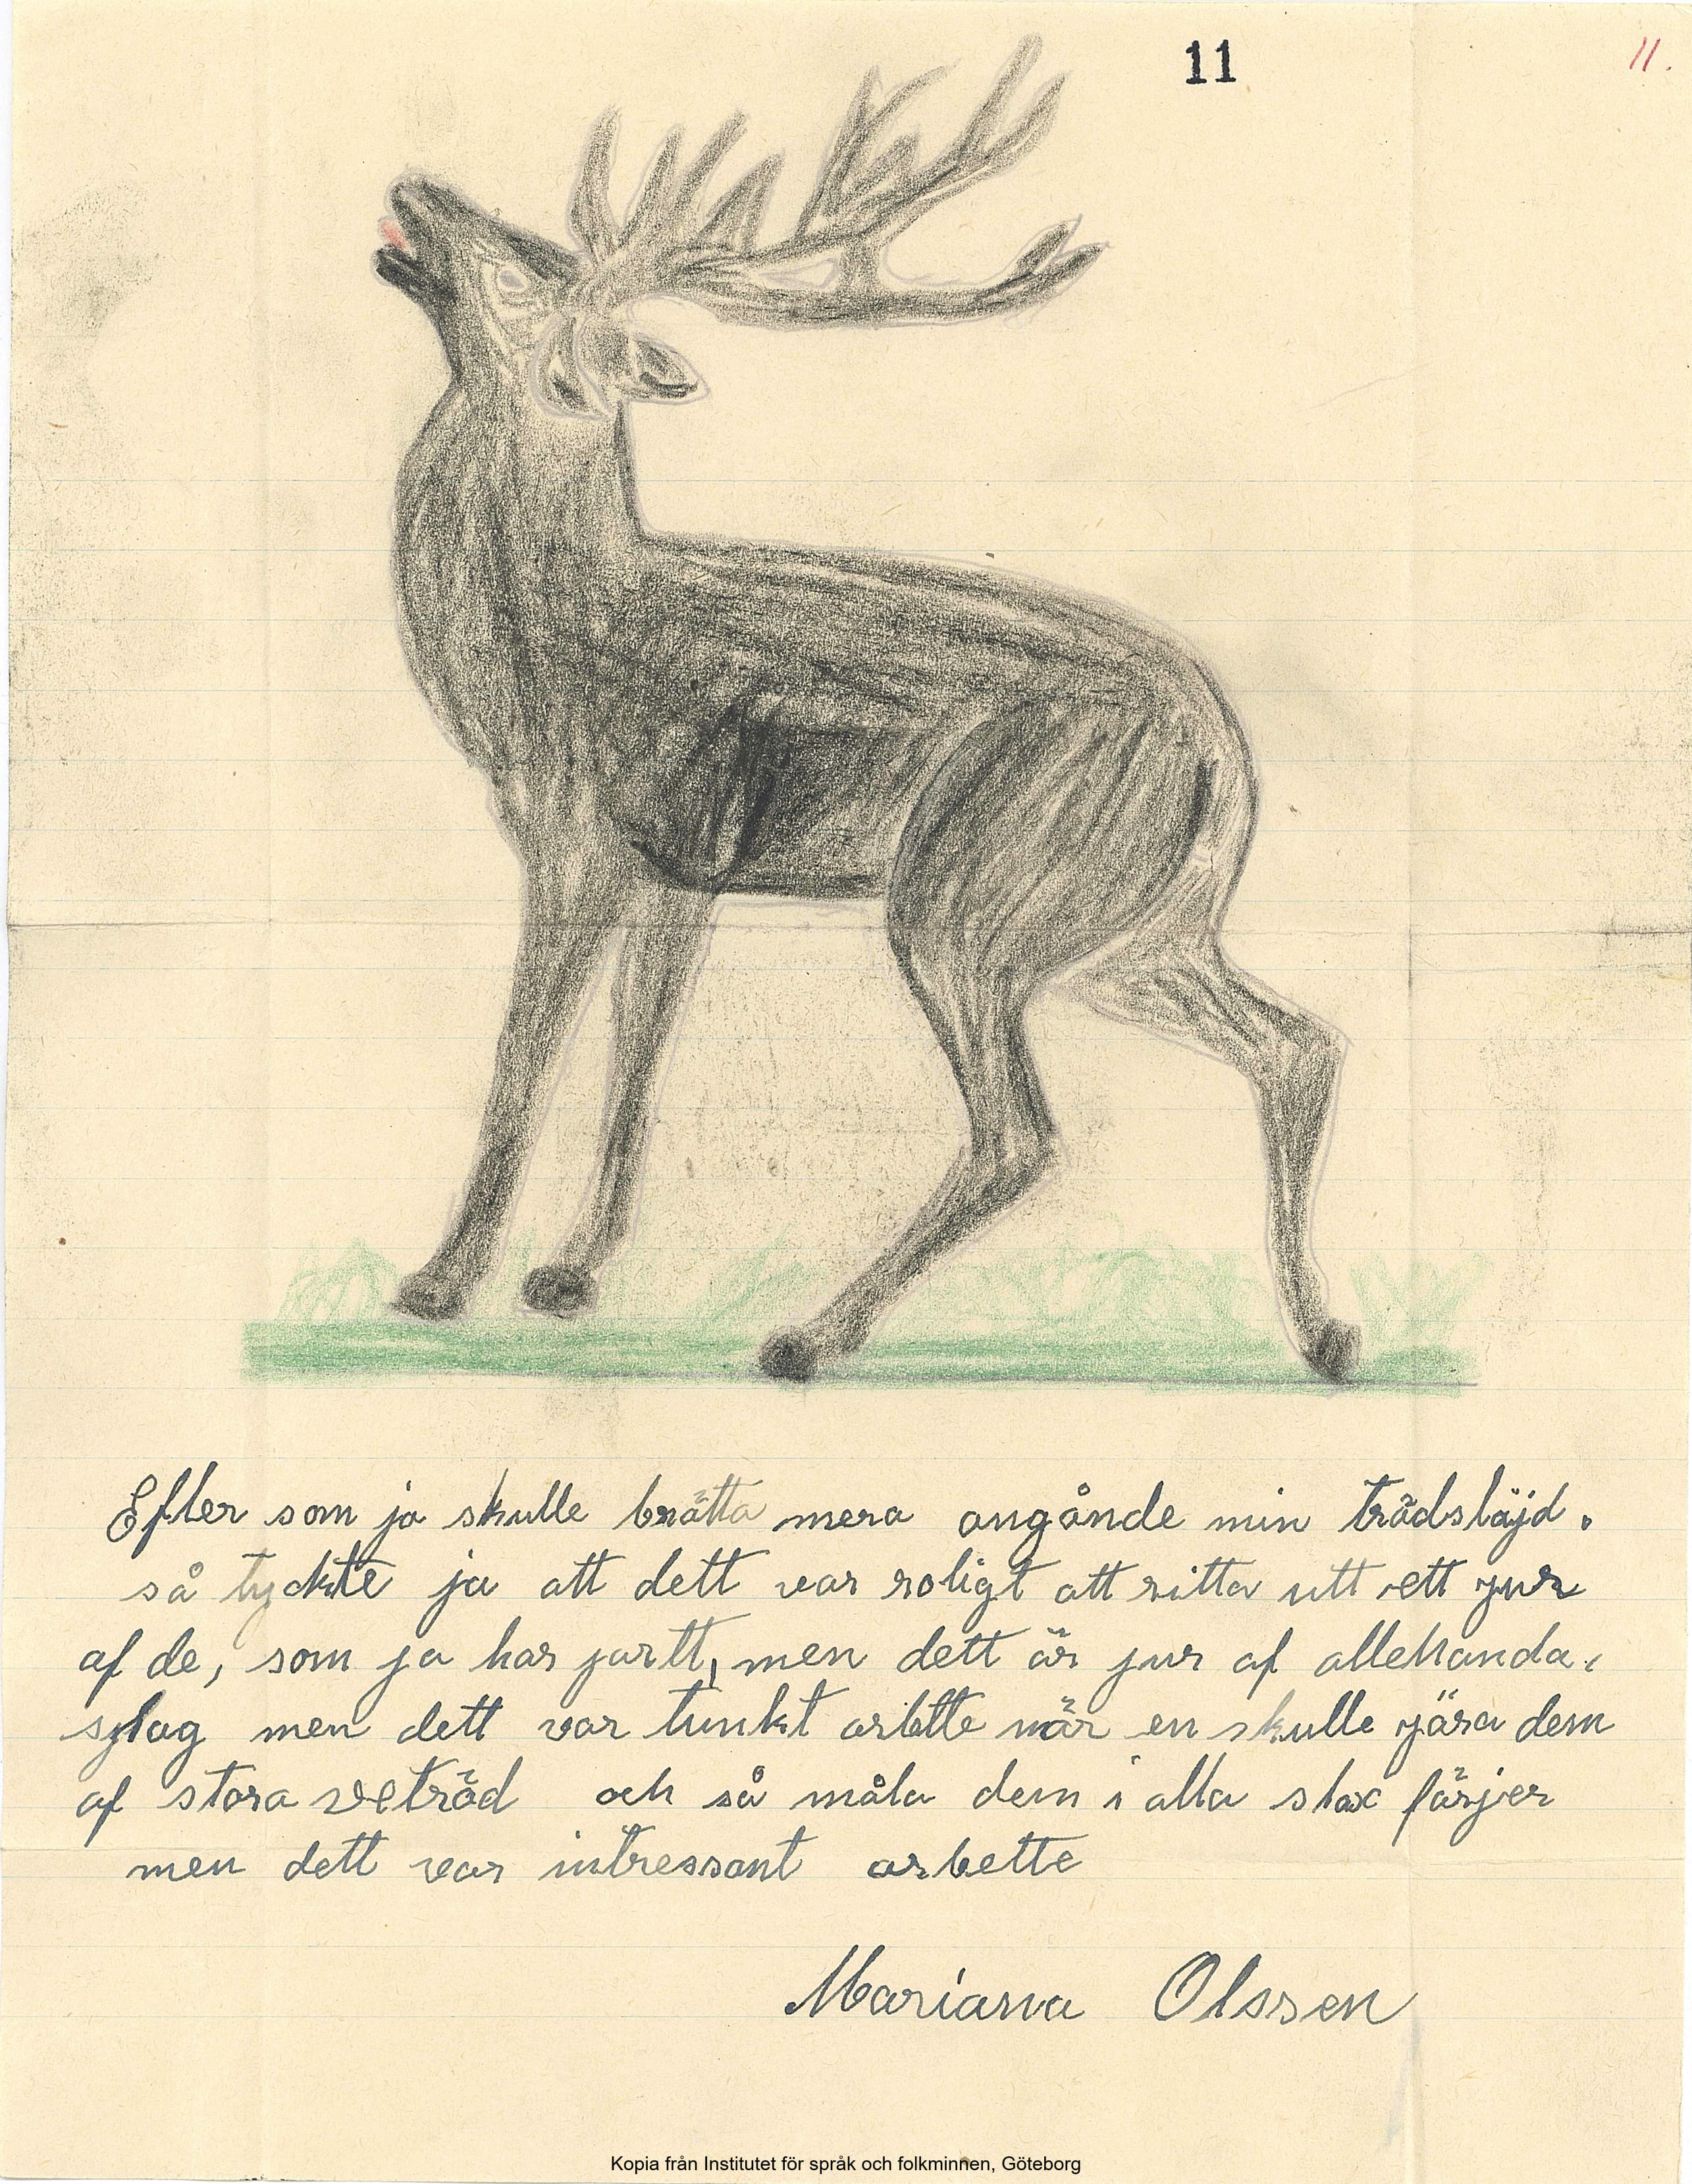 11
11.
Efter som ja skulle brätta mera angånde min trädsläjd.
så tyckte ja att dett var roligt att ritta utt ett jur
af de, som ja har jartt, men dett är jur af allehanda,
slag men dett var tunkt arbtte när en skulle jära dem
af stora veträd och så måla dem i alla slax färjer
men dett var intressant arbette
Mariana Olssen
Kopia från Institutet för språk och folkminnen, Göteborg